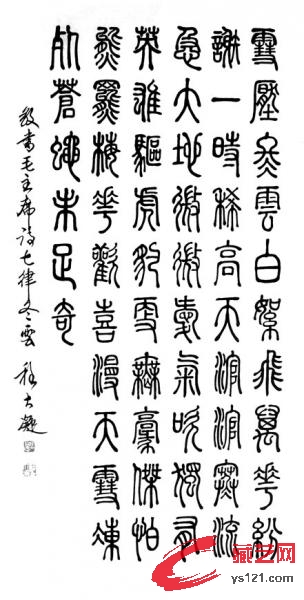 雪壓冬雲白絮飛萬花紛
謝一時稀高天滾滾寒流
急大地微微暖氣吹獨有
英雄驅虎豹更無豪傑怕
熊羆梅花歡喜漫天雪凍
死蒼蠅未足奇
敬書毛主席詩七律冬雲
藏艺网
ys121.com